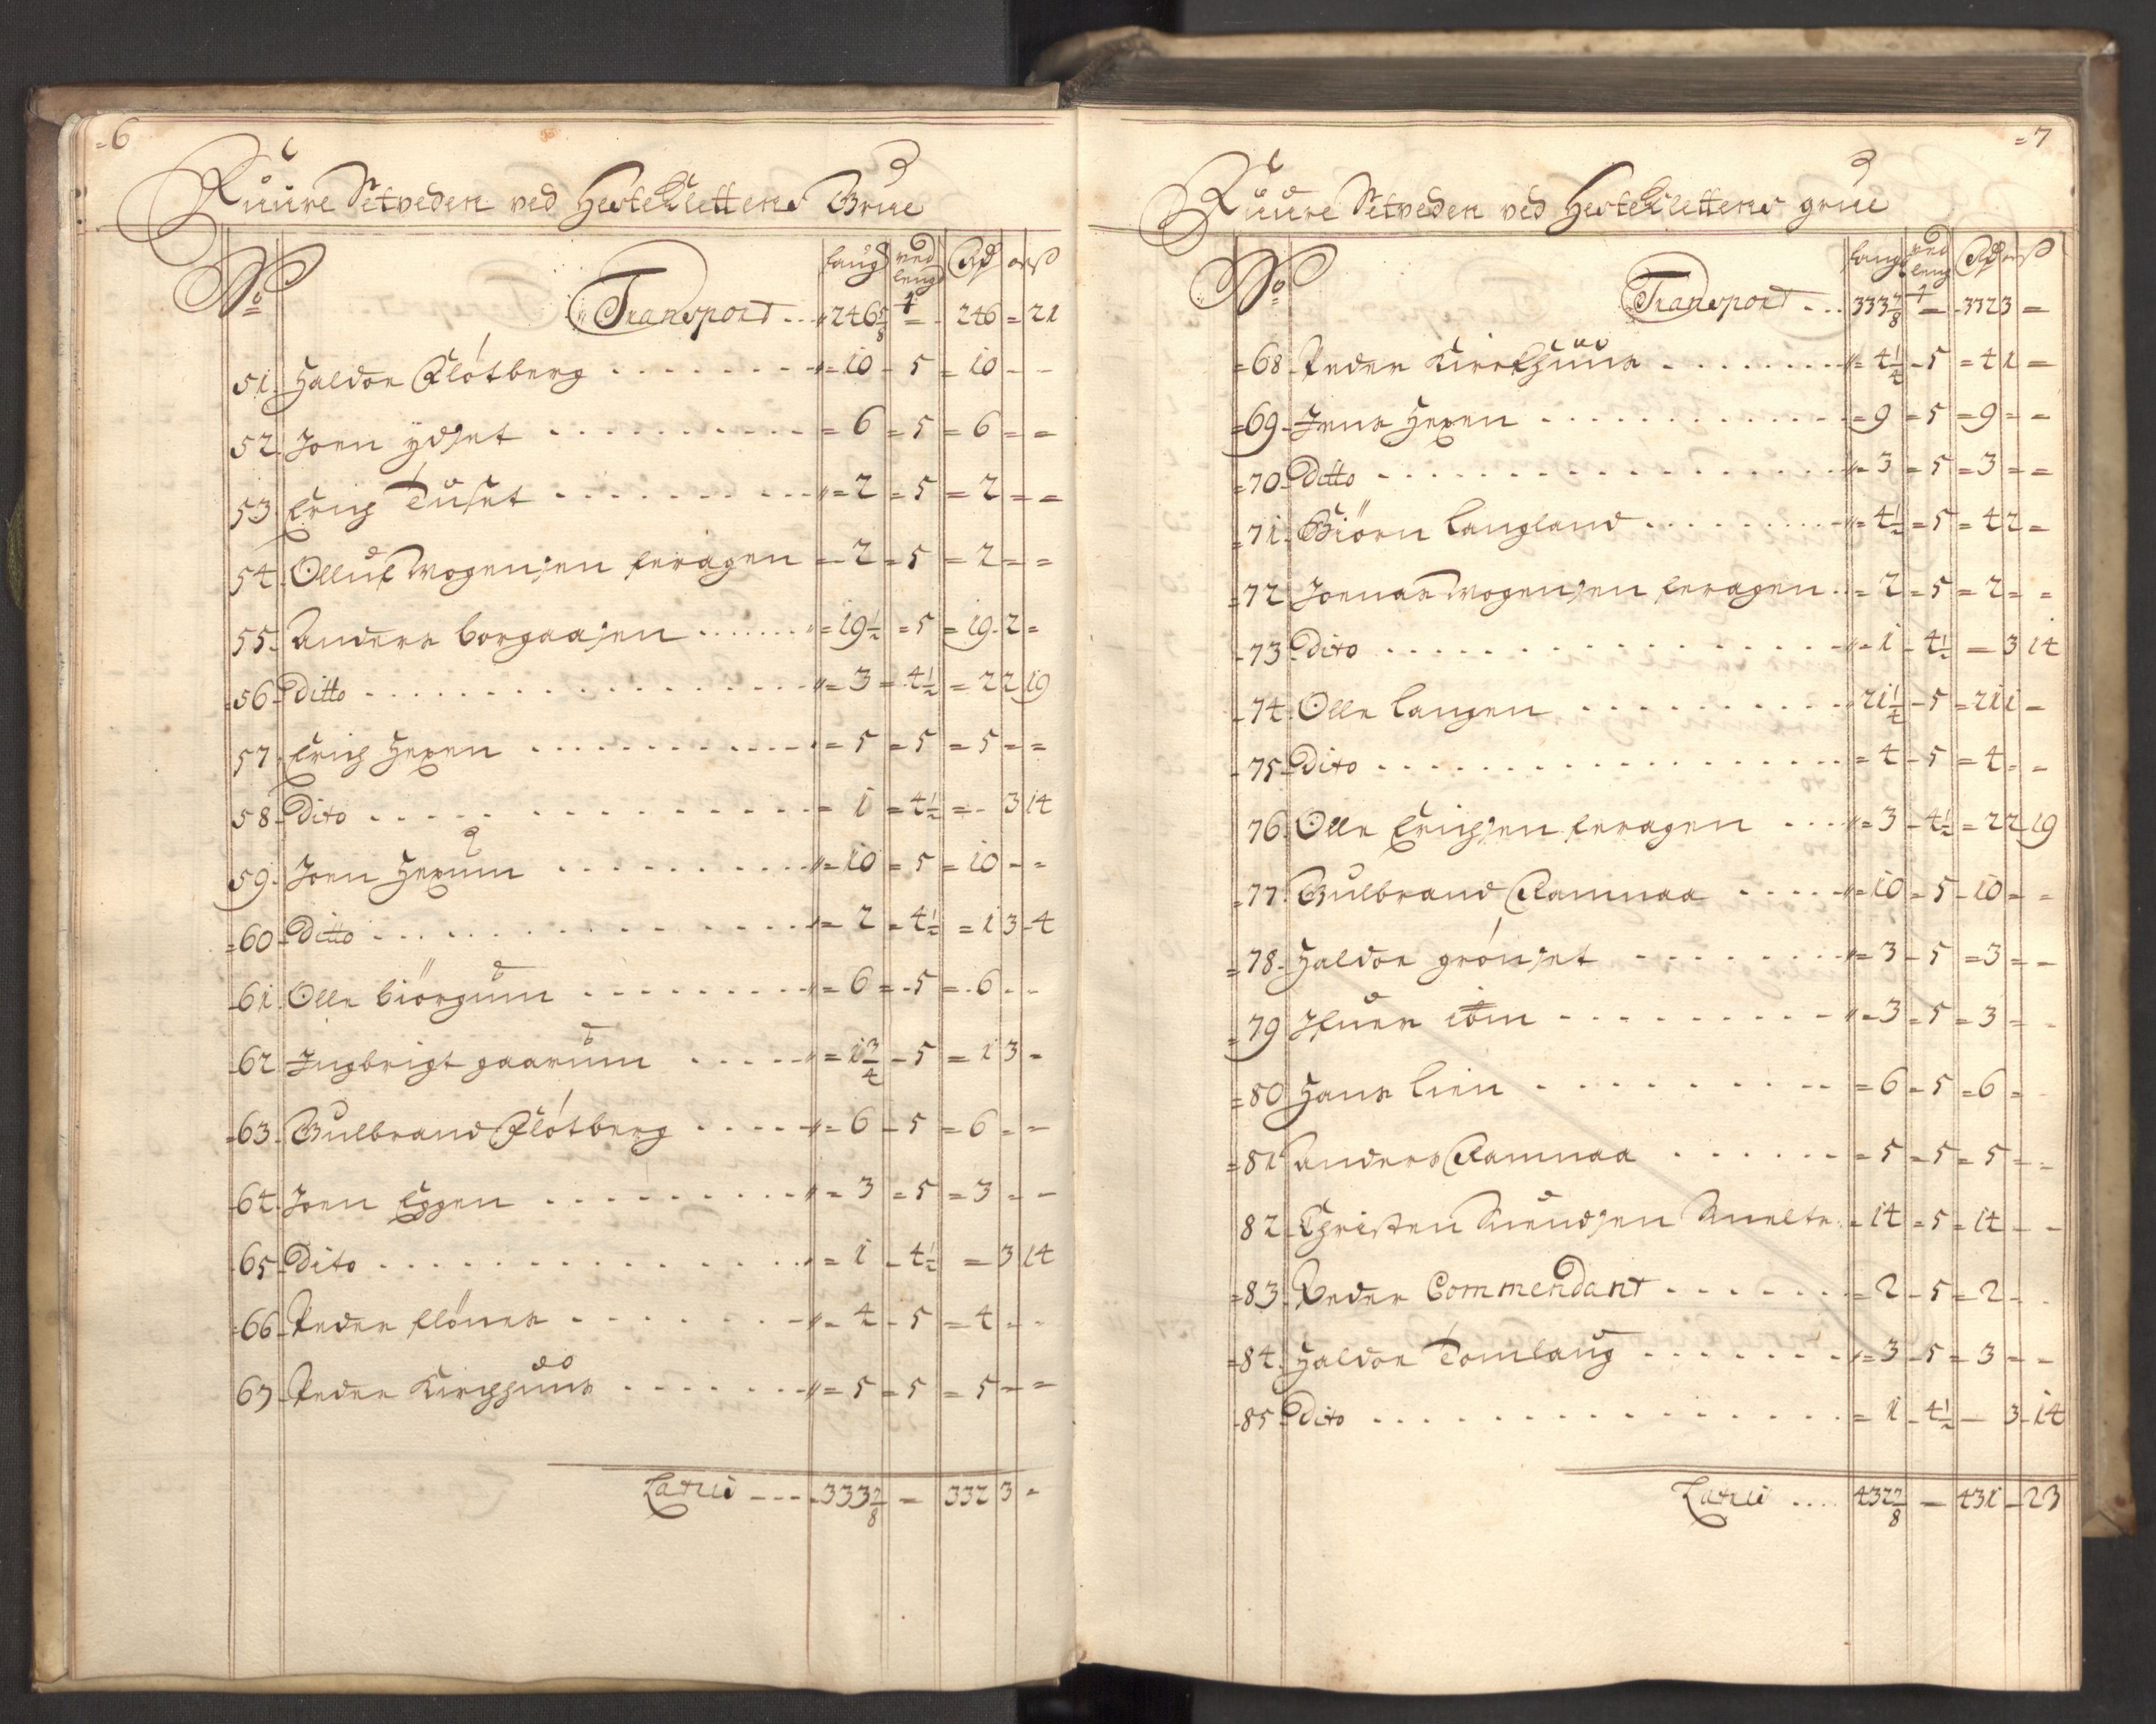 =6
Ruure Setveden ved HesteKlettens Grue
No laug ved leng Rd ort ß
Transport - - 246 5/8 - 246 = 21
51. Haldor Flótberg - 10 - 5 = 10 - -
52. Joen ÿdset = 6 = 5 = 6 = =
53. Erich Tuset = 2 = 5 = 2 = =
54. Olluf Mogensen feragen = 2 = 5 = 2 = =
55. Anders borgaasen = 19 1/2 = 5 = 19 - 2 =
=56. Ditto = 3 = 4 1/2 = 2 2 19
57. Erich Hexen = 5 = 5 = 5 = =
58. Dito = 1 = 4 1/2 = - 3 14
59. Joen Hexum = 10 = 5 = 10 - =
=60. Ditto = 2 = 4 1/2 = 1 3 - 4
-61. Olle biörgum = 6 = 5 = 6 - -
-62. Ingbrigt gaarum = 1 3/4 - 5 = 1 3 -
=63. Gulbrand Flótberg = 6 - 5 = 6 - -
-64. Joen Eggen = 3 = 5 = 3 = -
-65. Dito = 1 - 4 1/2 = 3 14
=66. Peder flönes - 4 - 5 = 4 - -
67. Peder Kirchhuus = 5 = 5 = 5 - =
Latus - - - - 333 7/8 - 332 3 -
=7
Ruure Setveden ved HesteKlettens grue
No laug ved leng Rd ort ß
Transport - - - 333 7/8 - 332 3 =
=68. Peder Kirkhuus = 4 1/4 - 5 = 4 1 =
=69. Jens Hexen = 9 = 5 = 9 = =
=70. Ditto = 3 = 5 = 3 = =
=71. Biörn Langland = 4 1/2 = 5 = 4 2 =
=72. Joenas Mogensen feragen = 2 = 5 = 2 = =
-73. Dito = 1 - 4 1/2 = 3 14
-74. Olle Langen 21 1/4 - 5 = 21 1 -
-75. Dito = 4 - 5 = 4 - -
76. Olle Erichsen feragen = 3 - 4 1/2 = 2 2 - 19
=77. Gulbrand Ramnaa = 10 = 5 - 10 = =
=78. Haldor grónset = 3 - 5 = 3 = -
=79 Ifuer = 3 = 5 = 3 = -
=80 Hans Lien = 6 - 5 = 6 = -
=81 Anders Ramnaa = 5 = 5 = 5 - -
82. Christen Suendsen Smelte = 14 = 5 = 14 - -
=83. Peder Commendant = 2 - 5 = 2 - -
=84. Haldor Tomlaug = 3 - 5 = 3 = -
-85. Dito = 1 - 4 1/2 - 3 - 14
Latus .... 432 7/8 - 431 - 23